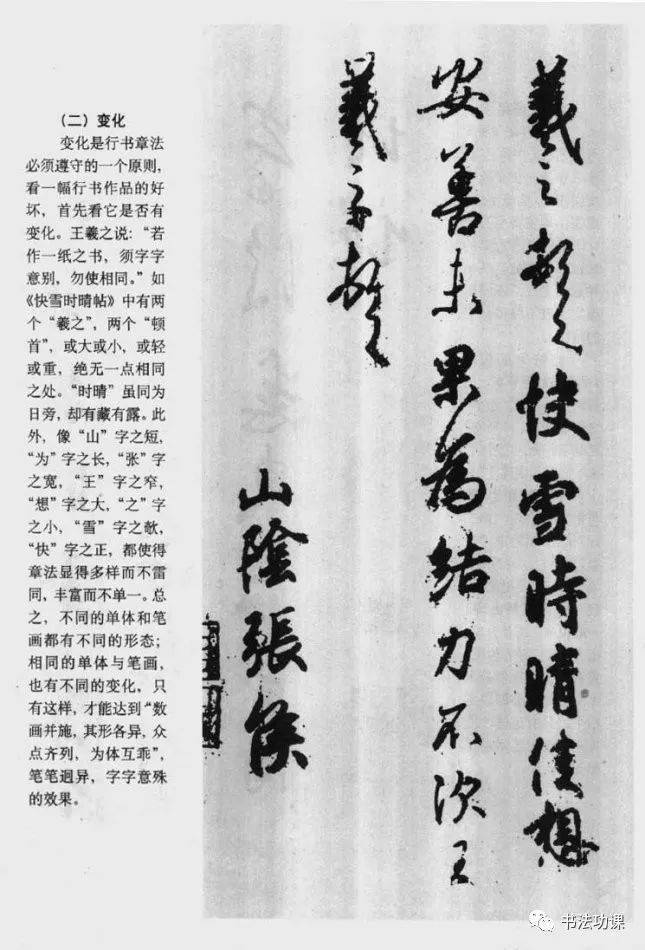 (二) 变化
变化是行书章法
必须遵守的一个原则,
看一幅行书作品的好
坏, 首先看它是否有
变化。王羲之说: “若
作一纸之书, 须字字
意别, 勿使相同。” 如
《快雪时晴帖》中有两
个 “羲之”, 两个 “顿
首”, 或大或小, 或轻
或重, 绝无一点相同
之处。“时晴” 虽同为
日旁, 却有藏有露。此
外, 像 “山” 字之短,
“为” 字之长, “张” 字
之宽, “王” 字之窄,
“想” 字之大, “之” 字
之小, “雪” 字之欹,
“快” 字之正, 都使得
章法显得多样而不雷
同, 丰富而不单一。总
之, 不同的单体和笔
画都有不同的形态;
相同的单体与笔画,
也有不同的变化, 只
有这样, 才能达到 “数
画并施, 其形各异, 众
点齐列, 为体互乖”,
笔笔迥异, 字字意殊
的效果。
羲之顿首快雪時晴佳想
安善未果為結力不次王
羲之顿首
山陰張侯
书法功课